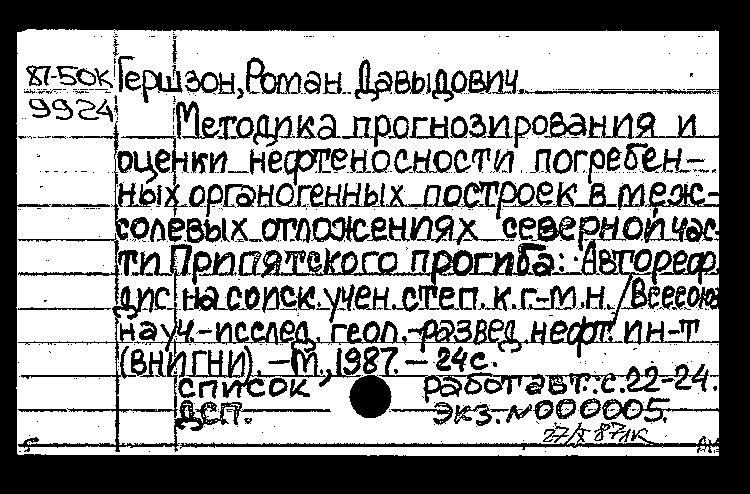 87-50К Гершзон, Роман Давыдович.
9924
Методика прогнозирования и
оценки нефтеносности погребен-
ных органогенных построек в меж-
солевых отложениях северной час-
ти Припятского прогиба: Автореф.
дис. на соиск. учен. степ. к.г.-м.н. / Всесоюз
науч.-исслед. геол.-развед. нефт. ин-т
(ВНИГНИ). – М., 1987. – 24 с.
список работ авт.: с. 22-24.
ДСП. Экз. №000005.
27/X 87